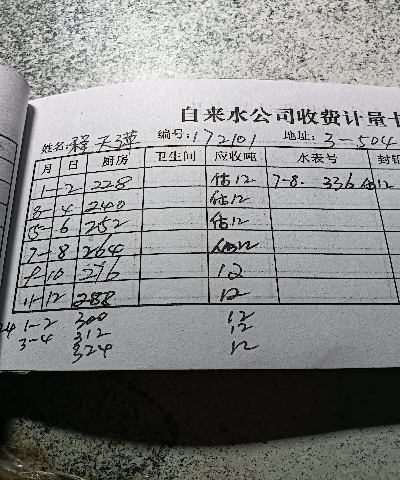 自来水公司收费计量卡
姓名: 编号: 172101 地址: 3-504
月 日 厨房 卫生间 应收吨 水表号 封铅
1-2 228 估12 7-8. 336 估12
3-4 240 估12
5-6 252 估12
7-8 264 估12
9-10 276 12
11-12 288 12
24 1-2 300 12
3-4 312 12
324 12